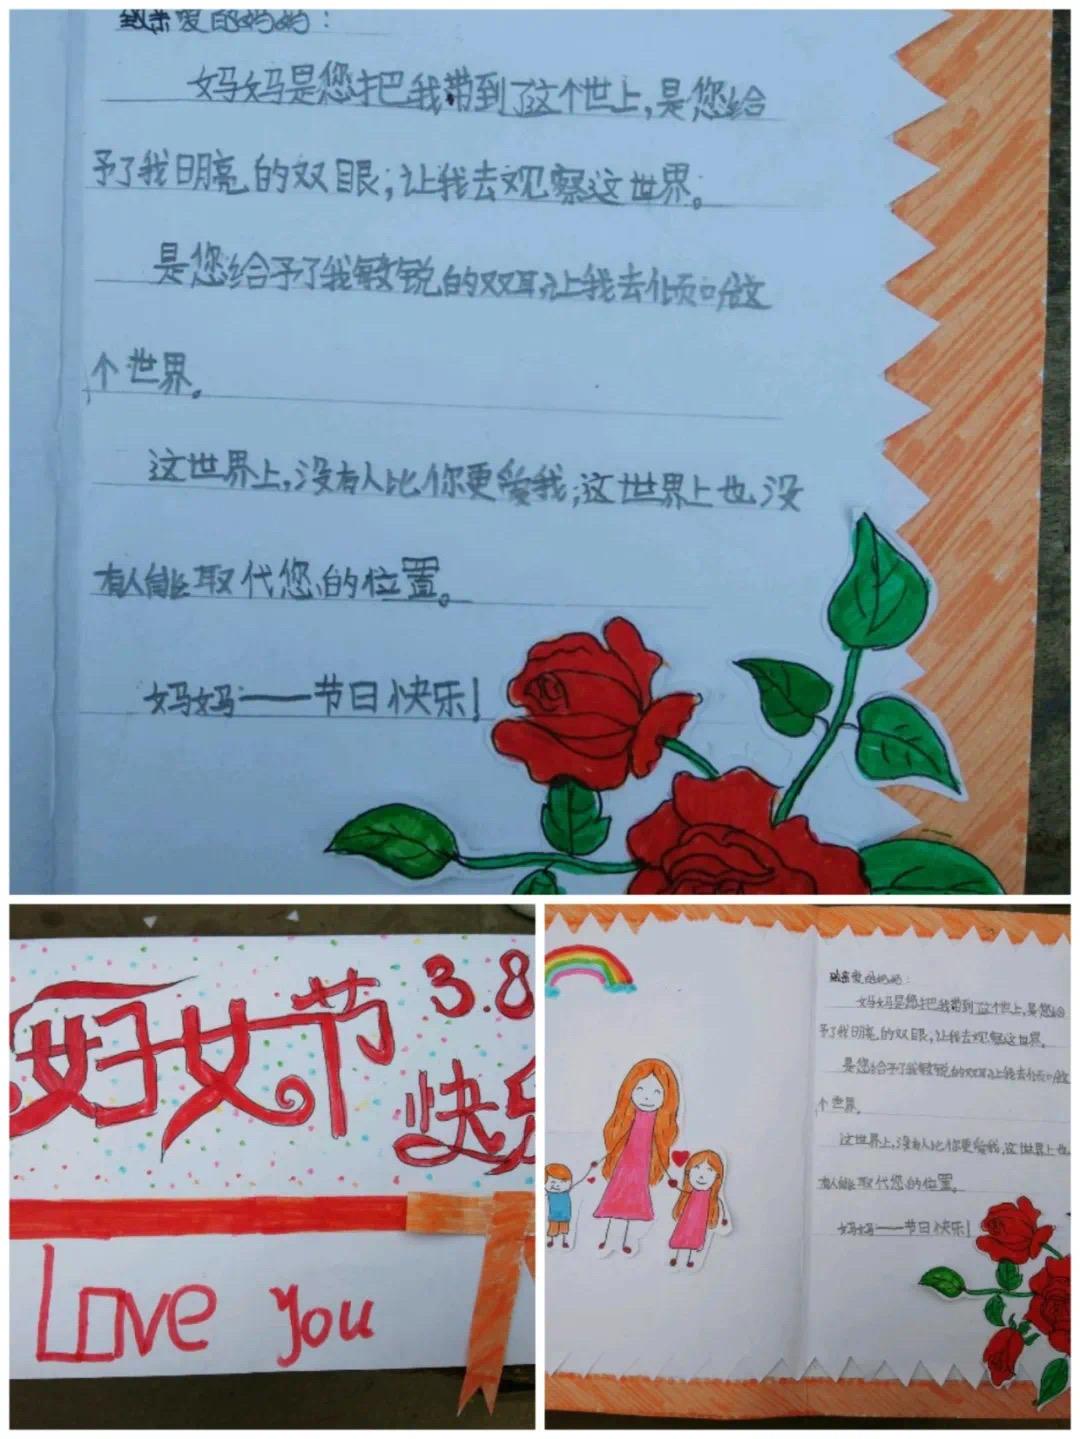 致亲爱的妈妈：
妈妈是您把我带到了这个世上，是您给
予了我明亮的双眼；让我去观察这世界。
是您给予了我敏锐的双耳，让我去倾听这
个世界。
这世界上，没有人比你更爱我；这世界上也没
有人能取代您的位置。
妈妈——节日快乐！
妇女节
3.8
快乐
Love you
致亲爱的妈妈：
妈妈是您把我带到了这个世上，是您给
予了我明亮的双眼；让我去观察这世界。
是您给予了我敏锐的双耳，让我去倾听这
个世界。
这世界上，没有人比你更爱我；这世界上也
有人能取代您的位置。
妈妈——节日快乐！